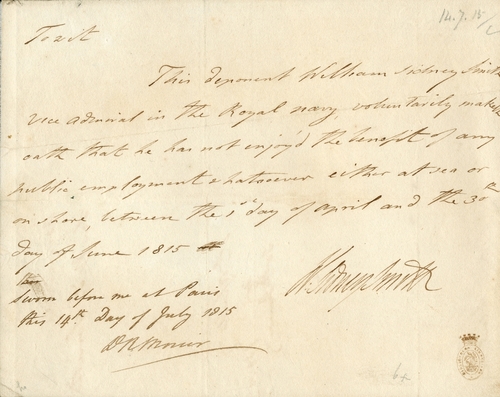 14.7.15
To wit
This deponent William Sidney Smith
vice admiral in the Royal navy, voluntarily maketh
oath that he has not enjoy'd the benefit of any
public employment whatsoever either at sea or
on shore, between the 1st day of April and the 30th
day of June 1815
Sworn before me at Paris
this 14th Day of July 1815
W Sidney Smith